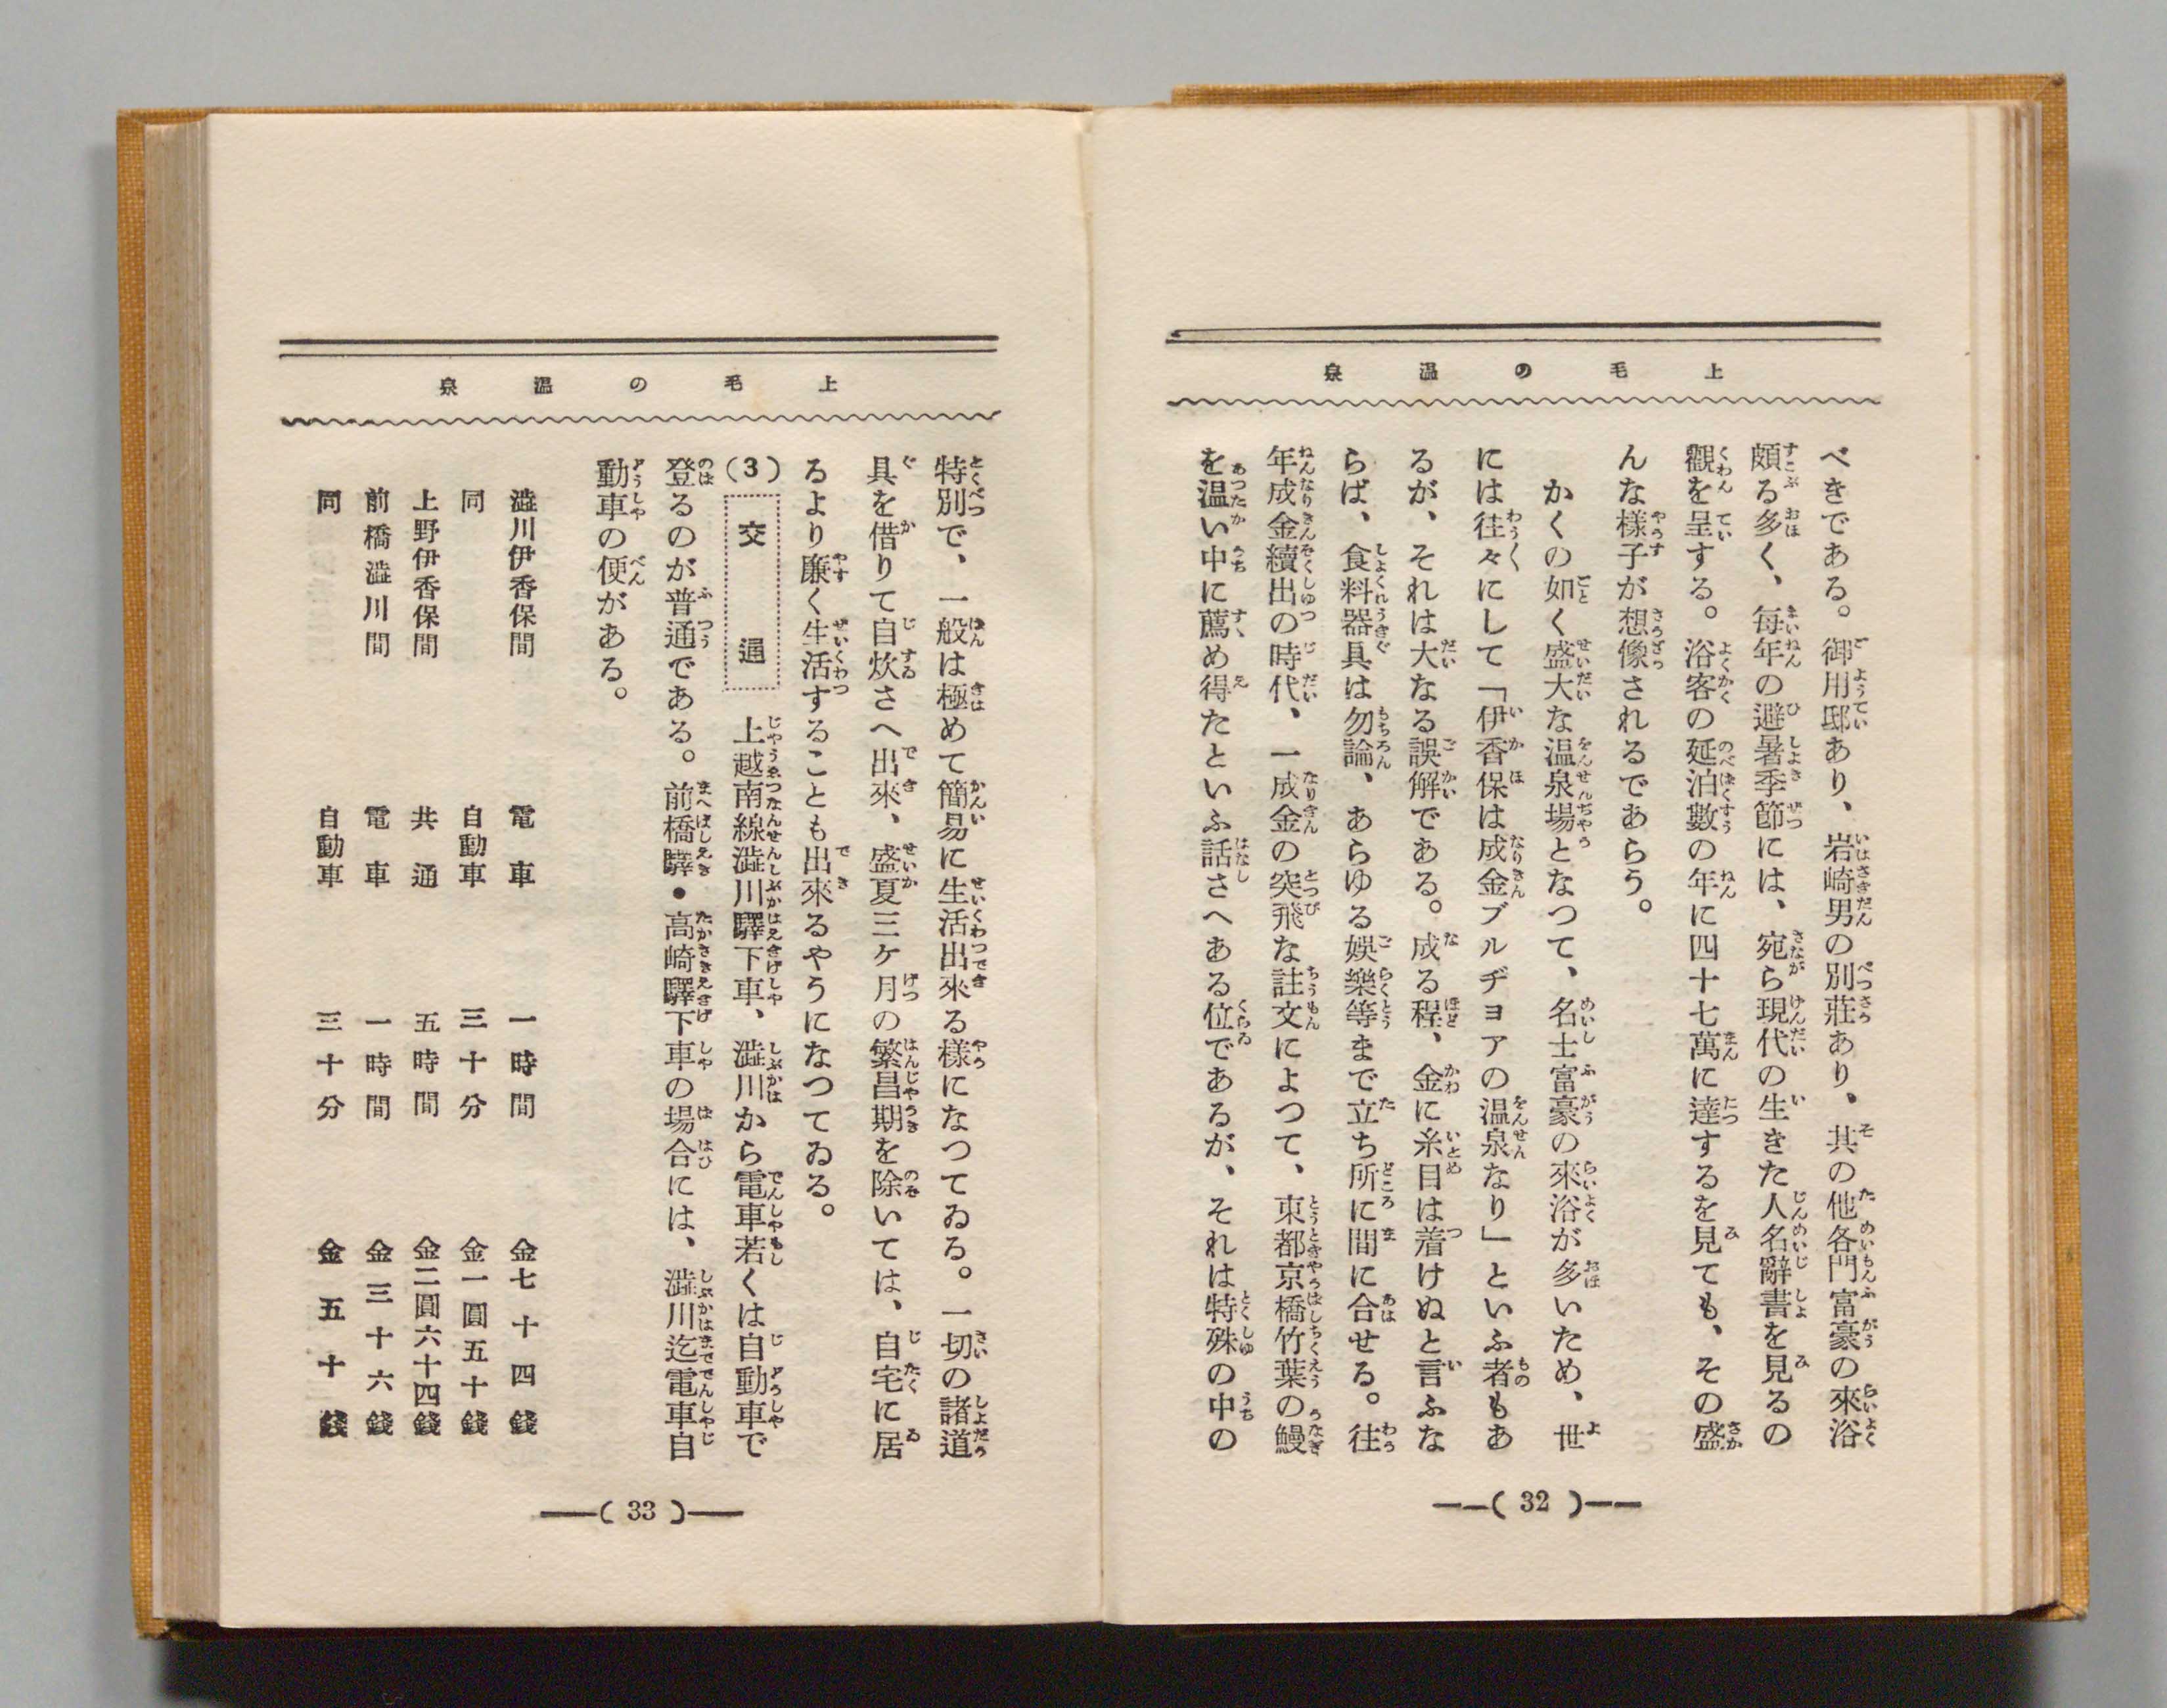 上毛の温泉
べきである。御用邸あり、岩崎男の別莊あり、其の他各門富豪の來浴
頗る多く、每年の避暑季節には、宛ら現代の生きた人名辭書を見るの
觀を呈する。浴客の延泊數の年に四十七萬に達するを見ても、その盛
んな樣子が想像されるであらう。
かくの如く盛大な温泉場となつて、名士富豪の來浴が多いため、世
には往々にして「伊香保は成金ブルヂョアの温泉なり」といふ者もあ
るが、それは大なる誤解である。成る程、金に糸目は着けぬと言ふな
らば、食料器具は勿論、あらゆる娯樂等まで立ち所に間に合せる。往
年成金續出の時代、一成金の突飛な註文によつて、東都京橋竹葉の鰻
を温い中に薦め得たといふ話さへある位であるが、それは特殊の中の
(32)
上毛の温泉
特別で、一般は極めて簡易に生活出來る樣になつてゐる。一切の諸道
具を借りて自炊さへ出來、盛夏三ケ月の繁昌期を除いては、自宅に居
るより廉く生活することも出來るやうになつてゐる。
(3) 交通 上越南線澁川驛下車、澁川から電車若くは自動車で
登るのが普通である。前橋驛・高崎驛下車の場合には、澁川迄電車自
動車の便がある。
澁川伊香保間 電車 一時間 金七十四錢
同 自動車 三十分 金一圓五十錢
上野伊香保間 共通 五時間 金二圓六十四錢
前橋澁川間 電車 一時間 金三十六錢
同 自動車 三十分 金五十錢
(33)